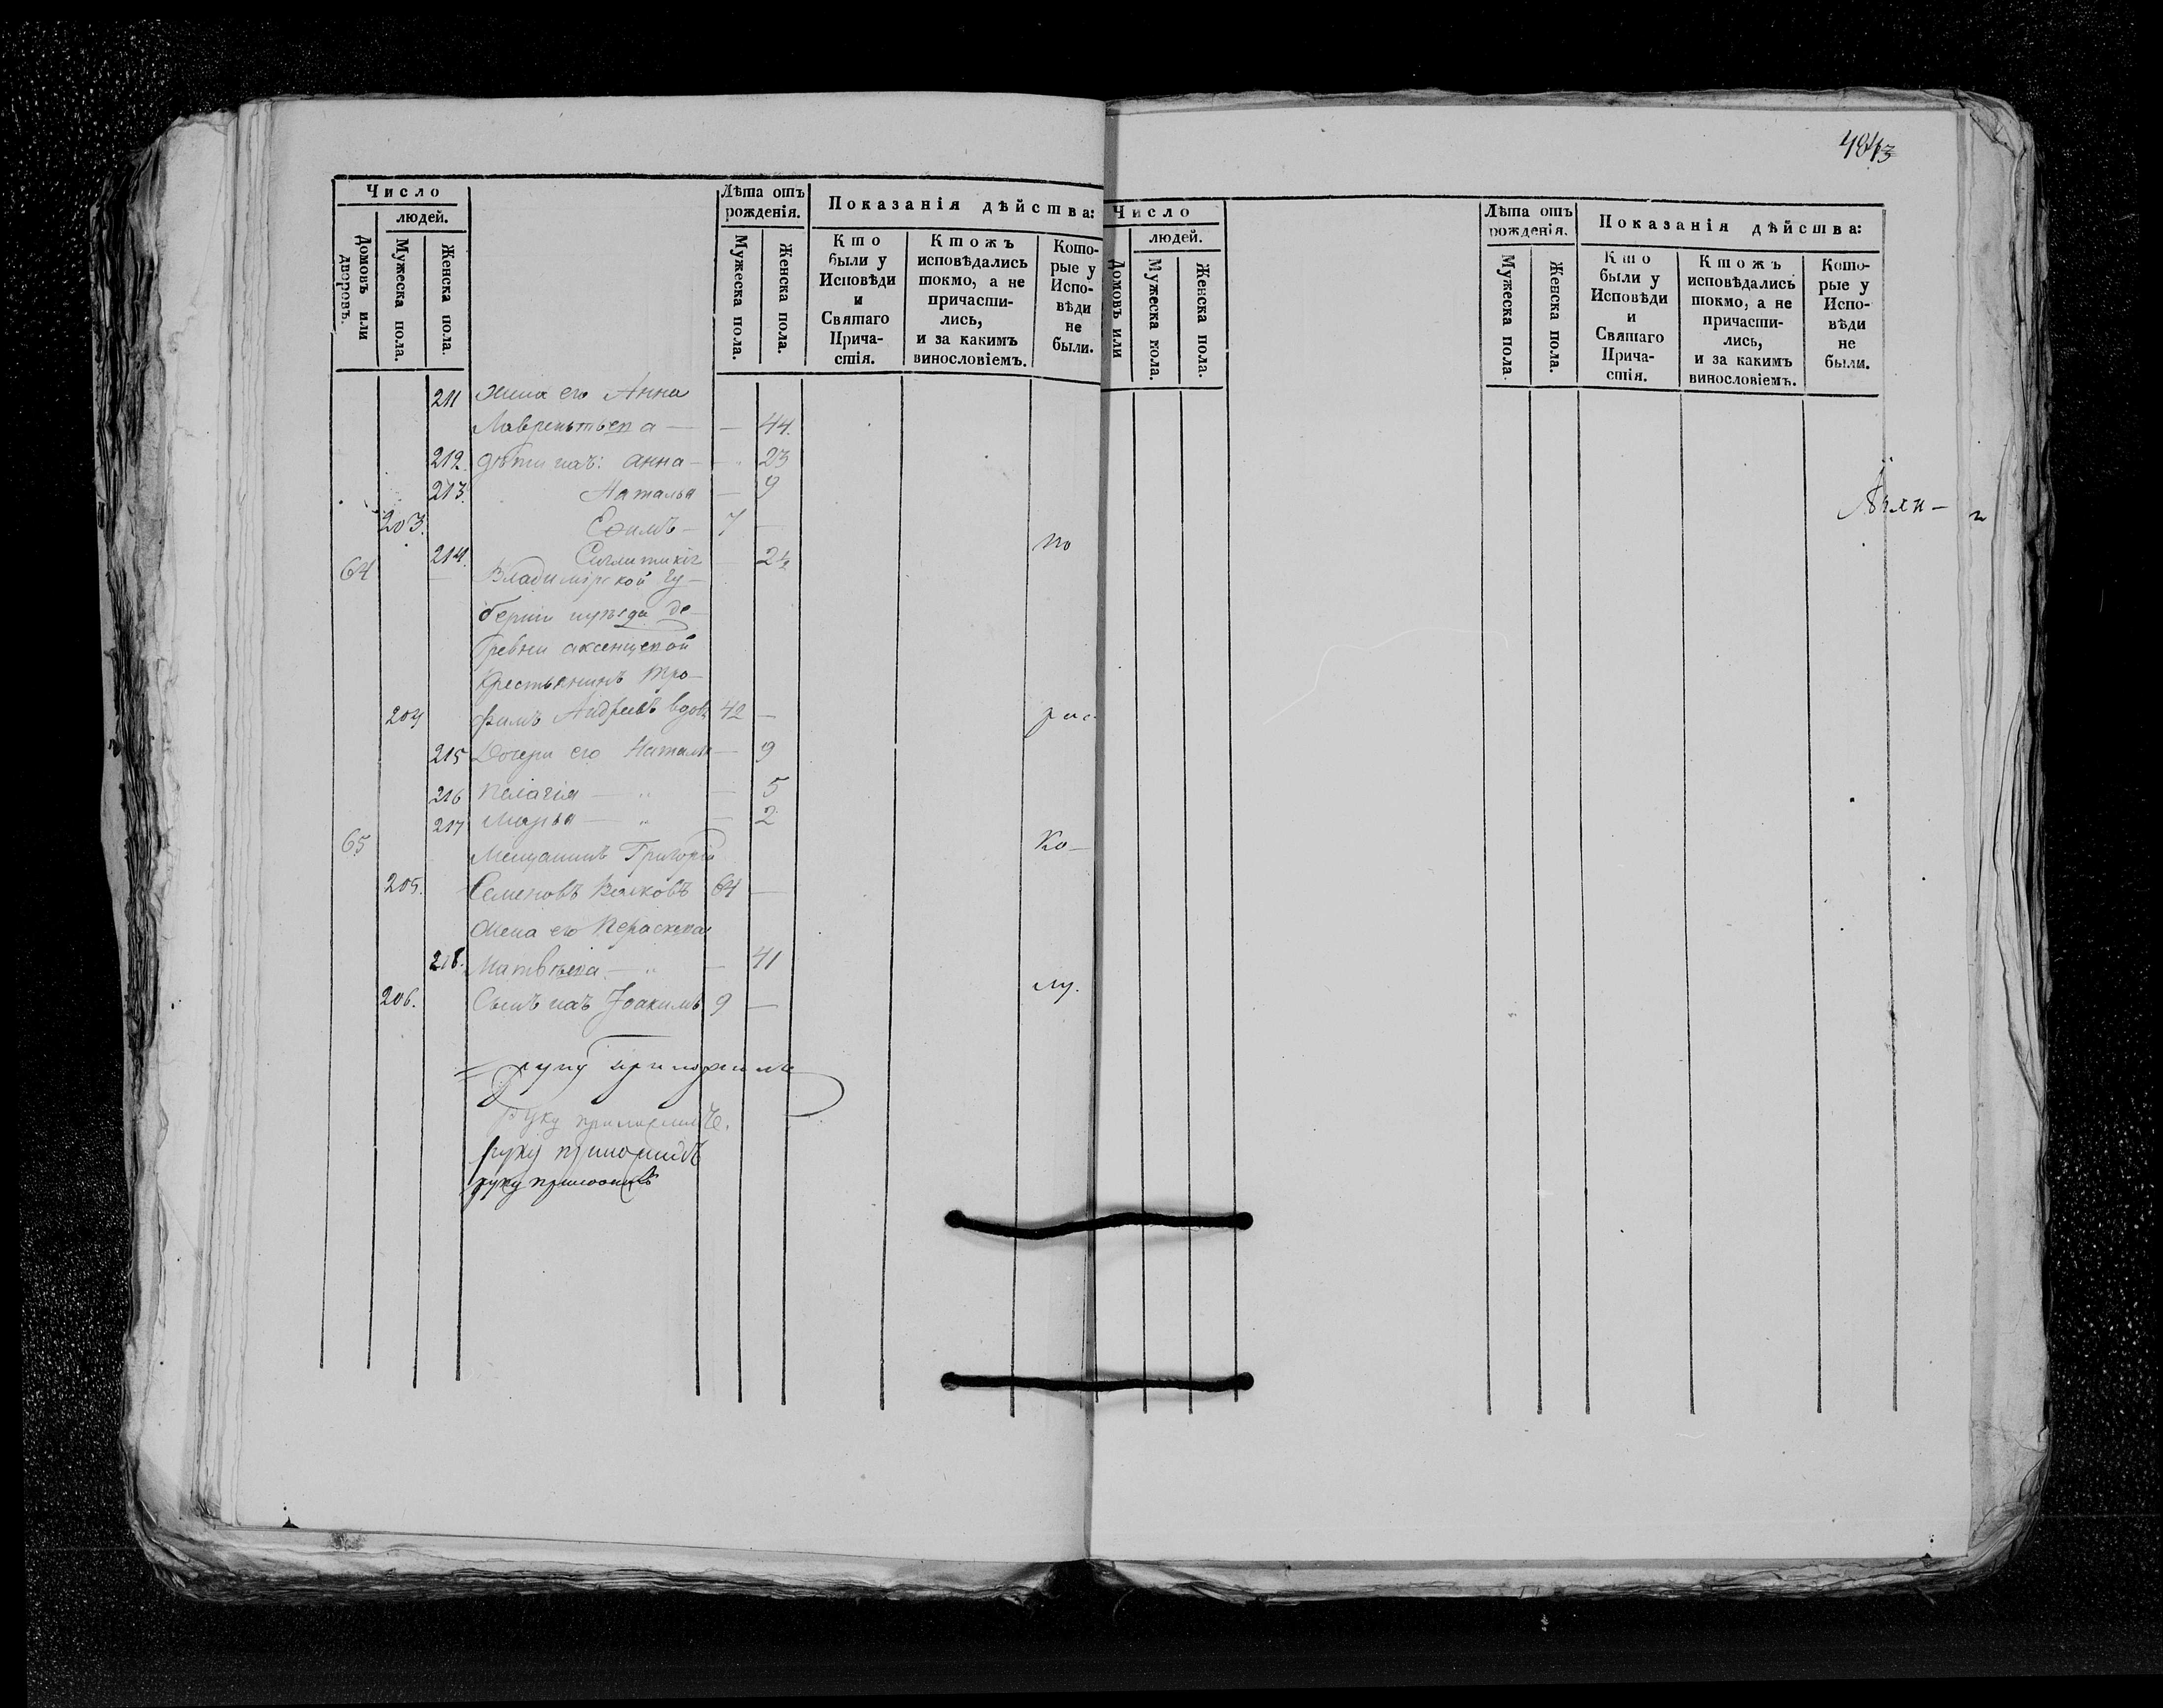 Число
людей.
Домовъ или дворовъ.
Мужеска пола.
Женска пола.
Лѣта отъ рожденія.
Мужеска пола.
Женска пола.
Показанія дѣйства:
Кто были у Исповѣди и Святаго Причастія.
Ктожъ исповѣдались токмо, а не причастились, и за какимъ винословіемъ.
Которые у Исповѣди не были.
211 жена его Анна
Лаврентьева — — 44.
212. дѣти ихъ: Анна — 23
213. Наталья — 9
203. Ефимъ — 7 —
214. — 2
по
64 — Владимірской гу-
берніи де-
ревни
Крестьянинъ Тро-
204 фимъ Андреевъ вдовъ 42 —
рис
215 Дочери его Наталья — 9
216 Пелагія — „ — 5
217 Марья — „ — 2
65 Мещанинъ Григорій
Ко-
205. Семеновъ Волковъ 64 —
Жена его Параскева
218. Матвѣева — „ — 41
206. Сынъ ихъ Іоакимъ 9 —
лу.
руку приложилъ
руку приложилъ.
руку приложилъ
руку приложилъ
Число
людей.
Домовъ или
Мужеска пола.
Женска пола.
Лѣта отъ рожденія.
Мужеска пола.
Женска пола.
Показанія дѣйства:
Кто были у Исповѣди и Святаго Причастія.
Ктожъ исповѣдались токмо, а не причастились, и за какимъ винословіемъ.
Которые у Исповѣди не были.